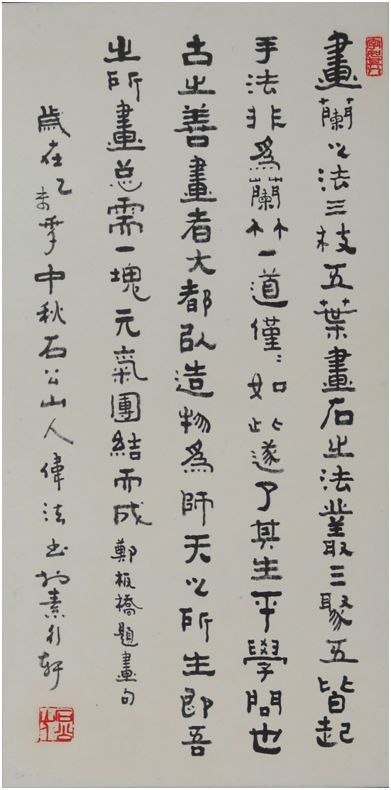 畫蘭之法三枝五葉畫石之法叢三聚五皆起
手法非為蘭竹一道僅〻如此遂了其生平學問也
古之善畫者大都以造物為師天之所生即吾
之所畫总需一塊元氣團結而成 鄭板橋題畫句
歲在乙未秊中秋石公山人偉法书於素行軒